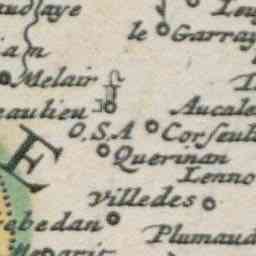 le Garray
Melair
eaulieu
Aucale
O.S.A
Corseul
E
Querinan
Lenno
Villedes
ebedan
Plumaud